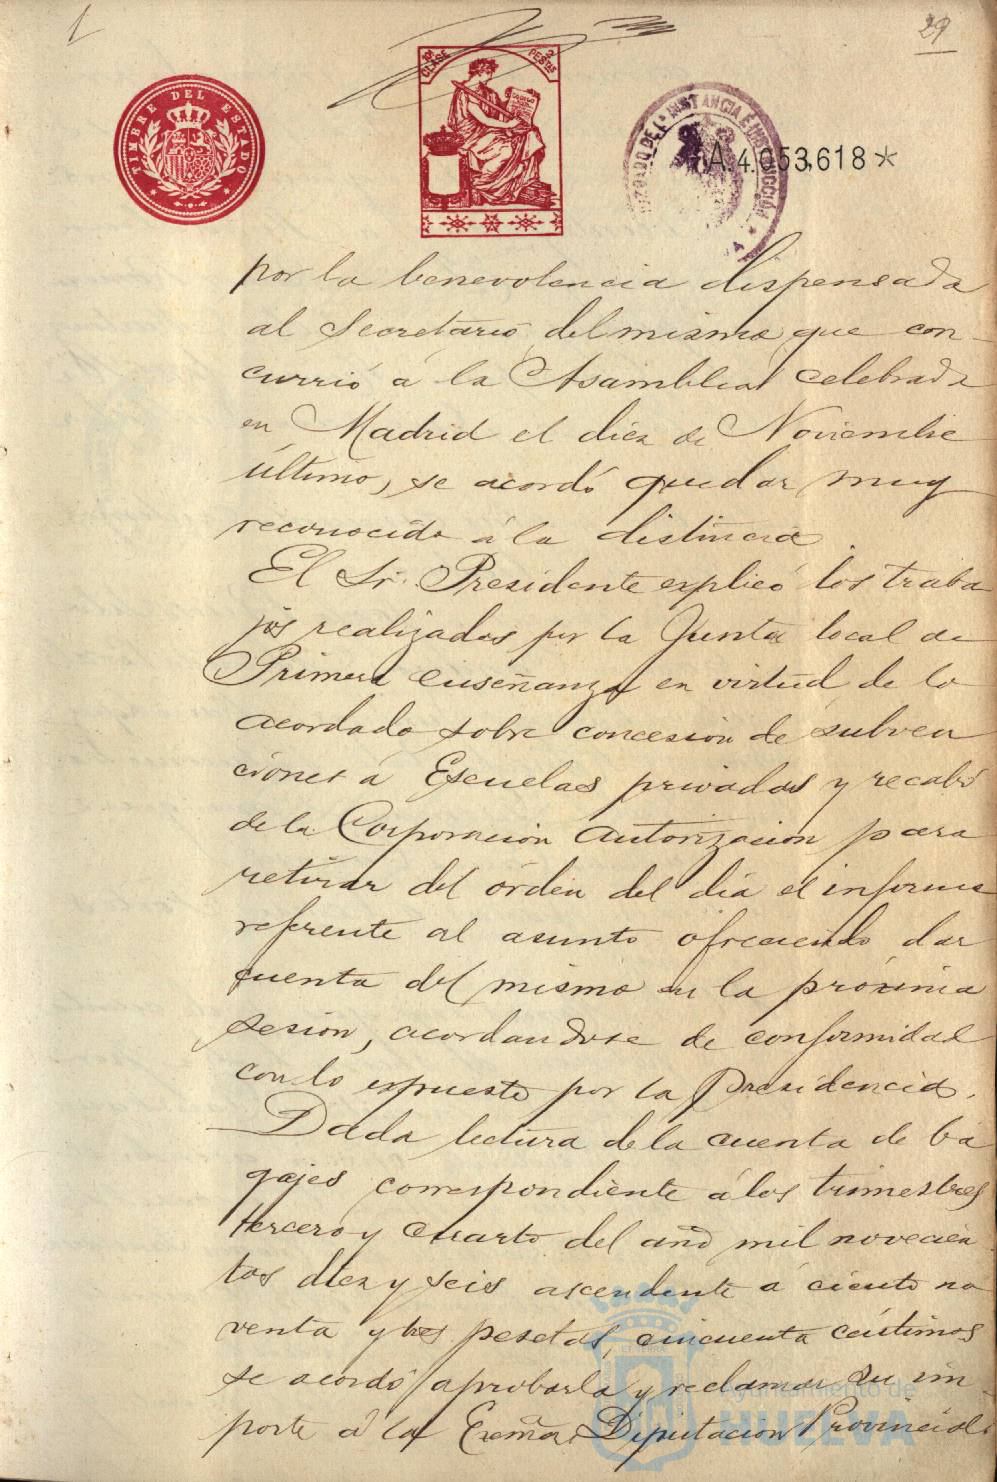 1
29
TIMBRE DEL ESTADO
10ª CLASE
2 PESETAS
JUZGADO DE 1ª INSTANCIA E INSTRUCCIÓN
A.4.053,618*
por la benevolencia dispensada
al Secretario del mismo, que con-
currió á la Asamblea celebrada
en Madrid el diez de Noviembre
último, se acordó quedar muy
reconocido á la distinción.
El Sr. Presidente explicó los traba
jos realizados por la Junta local de
Primera enseñanza en virtud de lo
acordado sobre concesión de subven
ciones á Escuelas privadas y recabó
de la Corporación autorización para
retirar del órden del día el informe
referente al asunto ofreciendo dar
cuenta del mismo en la próxima
sesión, acordandose de conformidad
con lo espuesto por la Presidencia.
Dada lectura de la cuenta de ba
gajes correspondiente á los trimestres
tercero y cuarto del año mil novecien
tos diez y seis ascendente á ciento no
venta y tres pesetas, cincuenta céntimos
se acordó aprobarla y reclamar su im
porte á la Exma. Diputación Provincial.
Ayuntamiento de
HUELVA